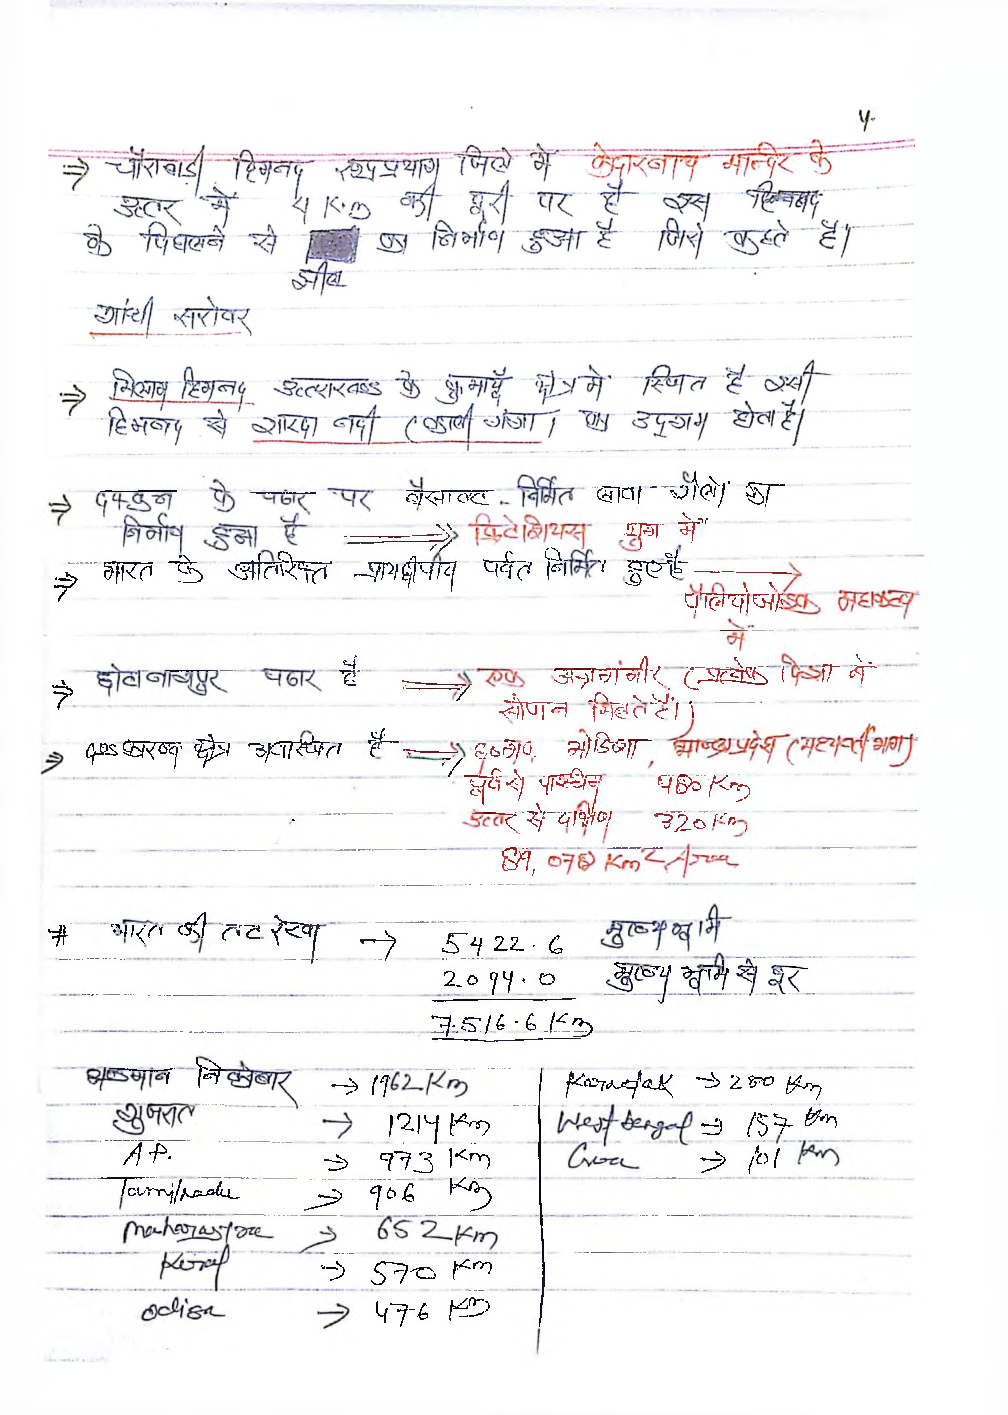 4.
⇒ चौराबाड़ी हिमनद रुद्रप्रयाग जिले में केदारनाथ मन्दिर के
उत्तर में 4 K.m की दूरी पर है इस हिमनद
के पिघलने से का निर्माण हुआ है जिसे कहते है।
झील
गांधी सरोवर
⇒ मिलाम हिमनद उत्तराखण्ड के कुमाऊँ क्षेत्र में स्थित है इसी
हिमनद से शारदा नदी (काली गंगा) का उद्गम होता है।
⇒ दक्कन के पठार पर बैसाल्ट - निर्मित लावा शैलों का
निर्माण हुआ है ⇒ क्रिटेशियस युग में
⇒ भारत के अतिरिक्त प्रायद्वीपीय पर्वत निर्मित हुए है →
पैलियोजोइक महाकल्प
में
⇒ छोटा नागपुर पठार है ⇒ एक अग्रगंभीर (प्रत्येक दिशा में
सोपान मिलते हैं।)
⇒ दण्डकारण्य क्षेत्र अवस्थित है ⇒ छ०ग०, ओडिशा, आन्ध्रप्रदेश (मध्यवर्ती भाग)
पूर्व से पश्चिम 480 Km
उत्तर से दक्षिण 320 Km
89,078 Km² Area
# भारत की तट रेखा → 5422.6 मुख्य भूमि
2094.0 मुख्य भूमि से दूर
7516.6 Km
अण्डमान निकोबार → 1962 Km
गुजरात → 1214 Km
A.P. → 973 Km
Tamilnadu → 906 Km
Maharastra → 652 Km
Keral → 570 Km
odisa → 476 Km
Karnatak → 280 Km
West bengal → 157 Km
Goa → 101 Km